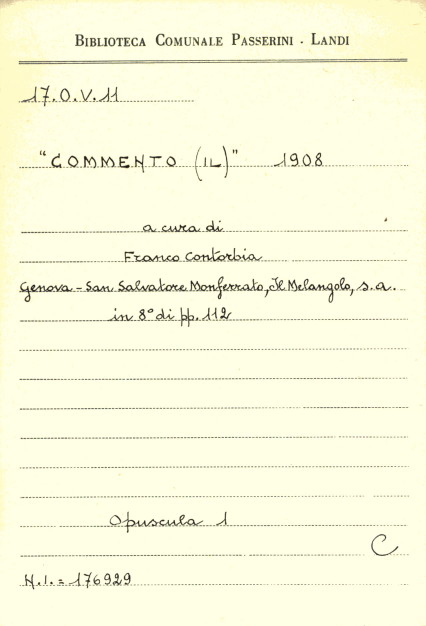 BIBLIOTECA COMUNALE PASSERINI - LANDI
17.O.V.11
"COMMENTO (IL)" 1908
a cura di
Franco Contorbia
Genova - San Salvatore Monferrato, Il Melangolo, s.a.
in 8° di pp. 112
Opuscula 1
C
N.I. = 176929